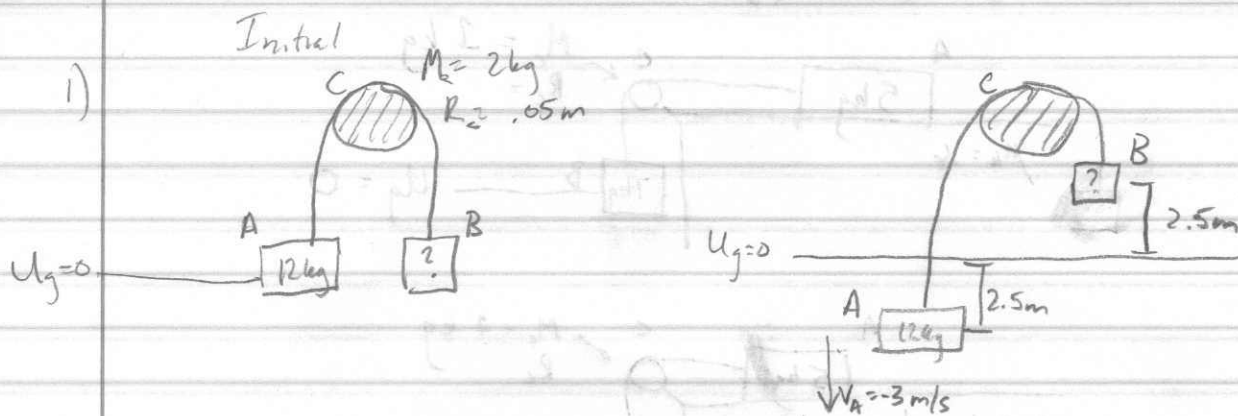 Initial
1)
C M_c = 2kg
R_c = .05m
A B
U_g=0 12kg ?
C
B
?
2.5m
U_g=0
2.5m
A 12kg
V_A = -3 m/s